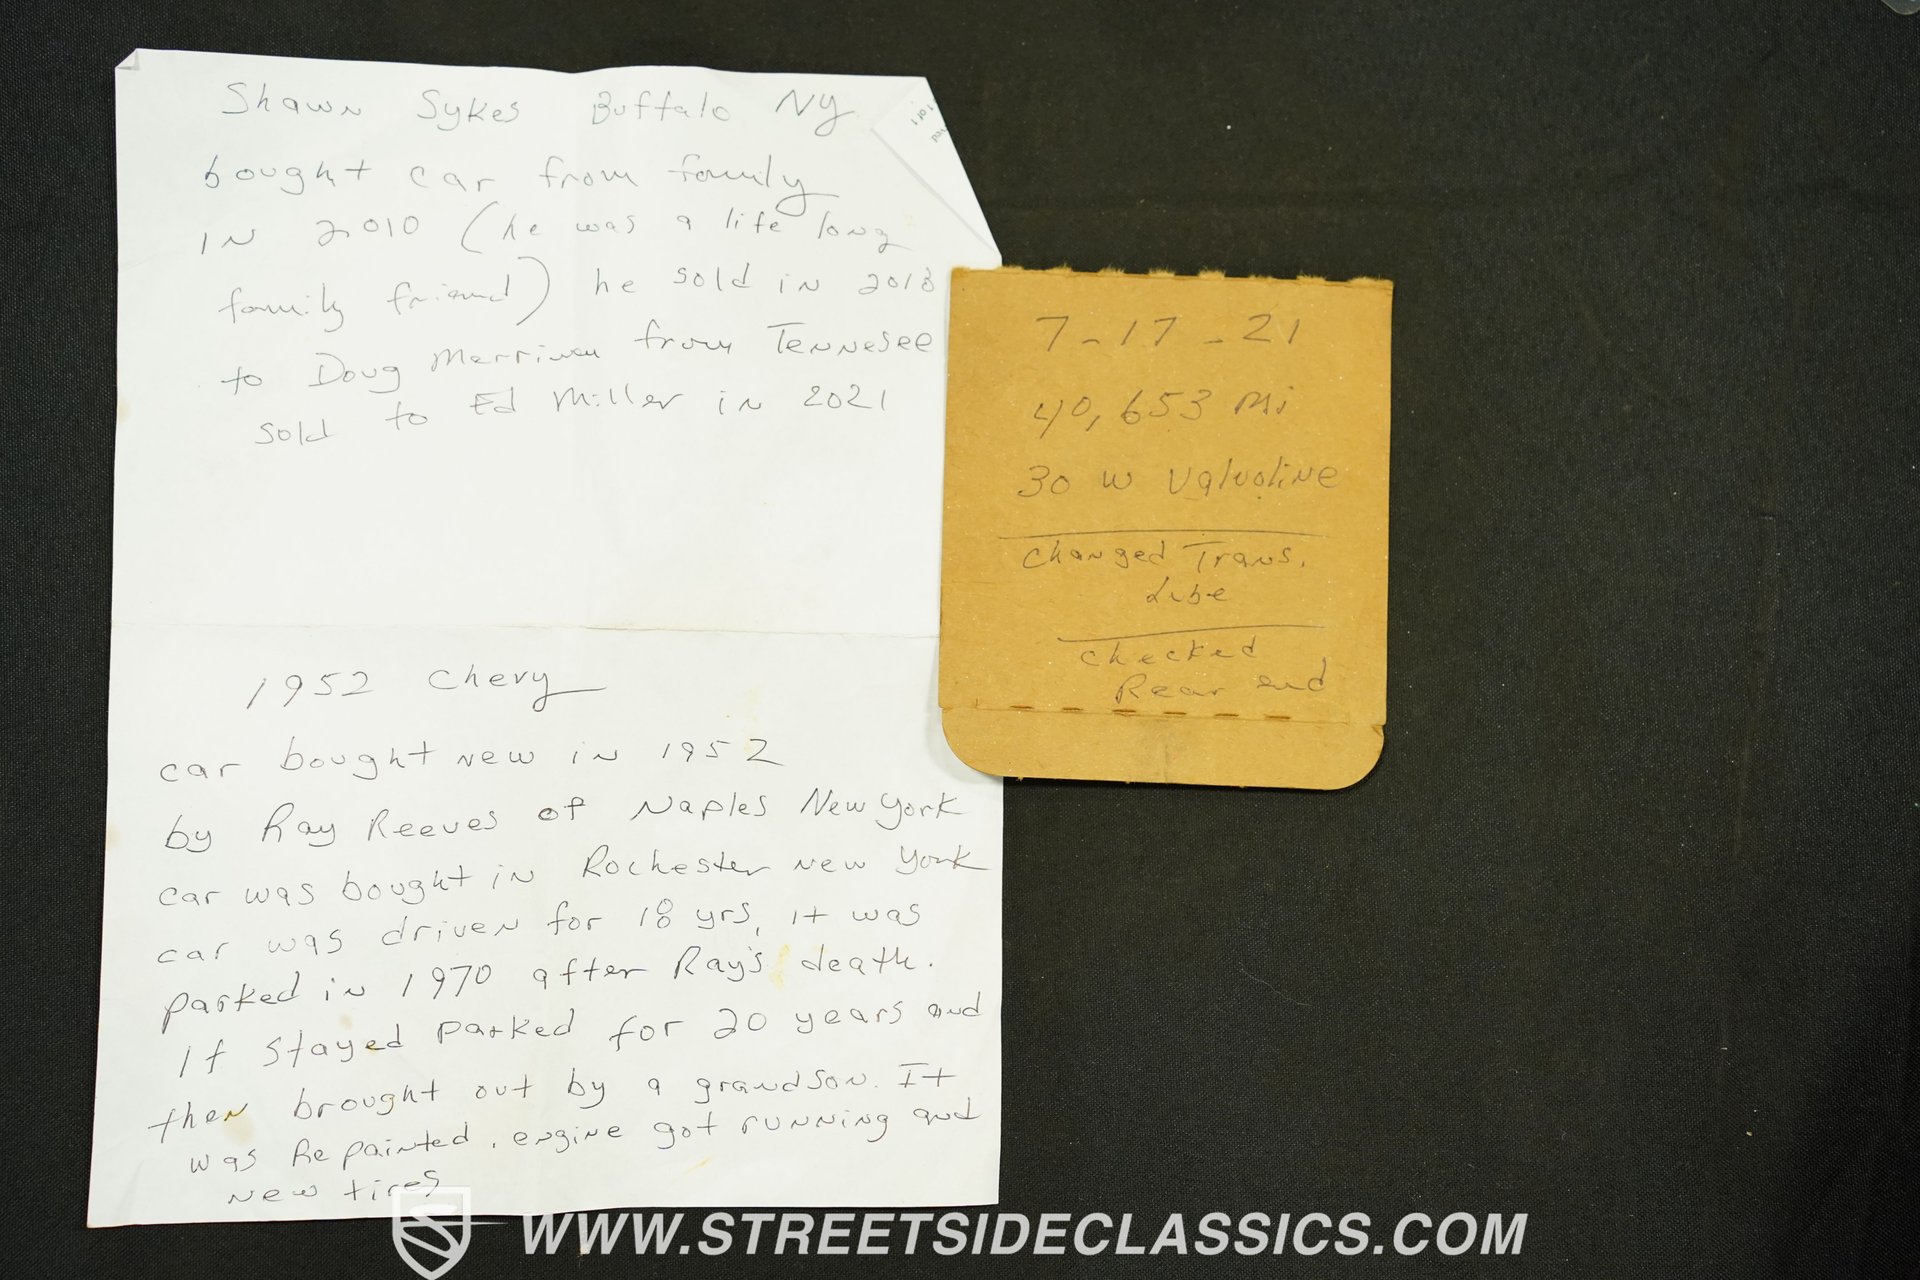 Shawn Sykes Buffalo NY
bought car from family
IN 2010 (he was a life long
family friend) he sold in 2018
to Doug from Tennesee
sold to Ed Miller in 2021
1952 Chevy
car bought new in 1952
by Ray Reeves of Naples New York
car was bought in Rochester New York
car was driven for 18 yrs, it was
parked in 1970 after Ray's death.
It stayed parked for 20 years and
then brought out by a grandson. It
was Repainted, engine got running and
new tires
7-17-21
40,653 mi
30 w Valvoline
Changed Trans.
Lube
Checked
Rear end
WWW.STREETSIDECLASSICS.COM